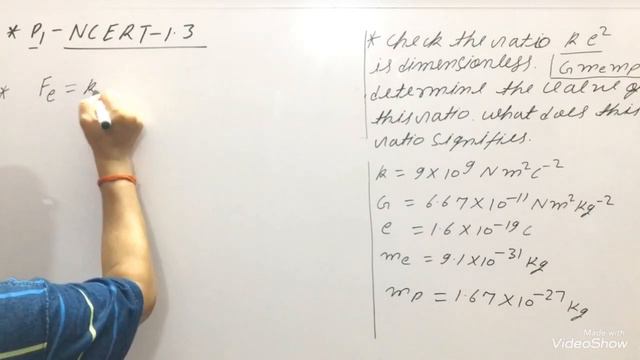 * P₁ - NCERT - 1.3
* Fe = k
* Check the ratio ke²
is dimensionless. Gmemp
determine the value of
this ratio. what does this
ratio signifies.
k = 9×10⁹ Nm²C⁻²
G = 6.67×10⁻¹¹ Nm²kg⁻²
e = 1.6×10⁻¹⁹ C
me = 9.1×10⁻³¹ kg
mp = 1.67×10⁻²⁷ kg
Made with
VideoShow